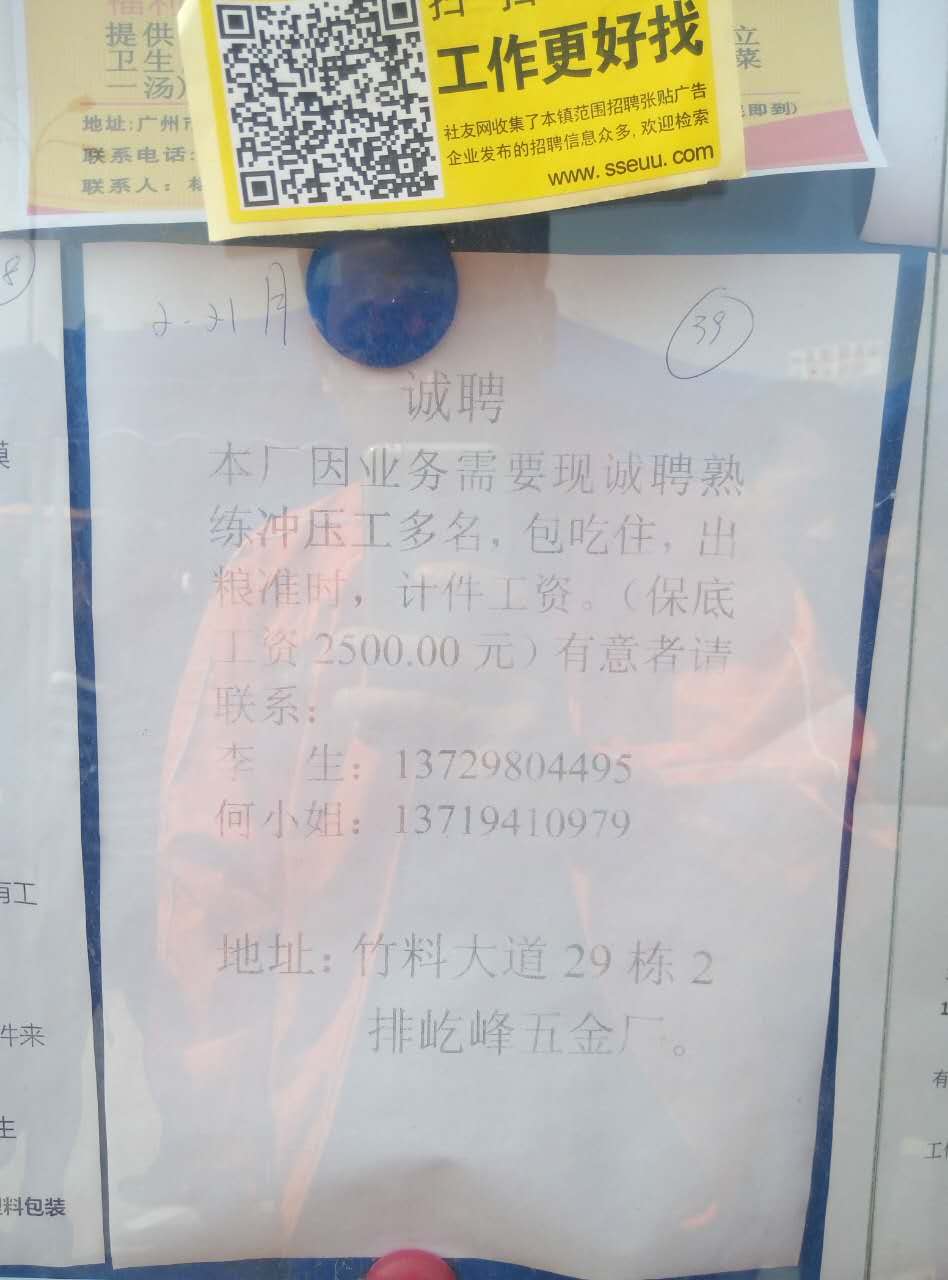 提供
卫生
一汤）
地址:广州市
联系电话:
联系人:
立
菜
即到）
工作更好找
社友网收集了本镇范围招聘张贴广告
企业发布的招聘信息众多,欢迎检索
www.sseuu.com
8
2-21月
39
诚聘
本厂因业务需要现诚聘熟
练冲压工多名，包吃住，出
粮准时，计件工资。（保底
工资2500.00元）有意者请
联系：
李　生：13729804495
何小姐：13719410979
地址：竹料大道29栋2
排屹峰五金厂。
有工
件来
生
料包装
1
有
工作